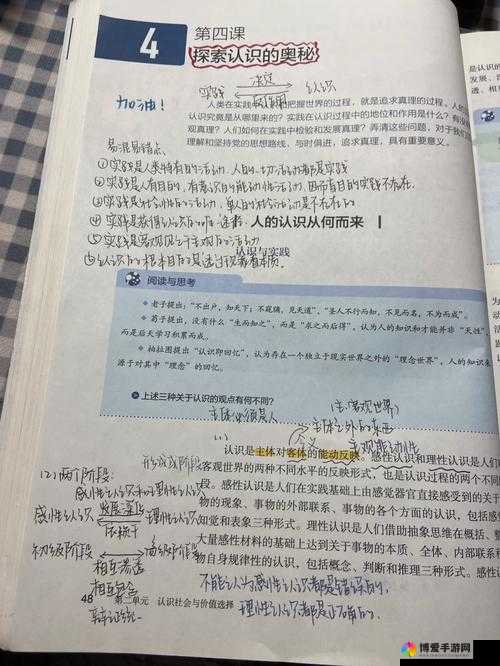 4
第四课
探索认识的奥秘
决定
实践 认识
加油！
人类在实践中 把握世界的过程，就是追求真理的过程。人的
认识究竟是从哪里来的？实践在认识过程中的地位和作用是什么？有没
观真理？人们如何在实践中检验和发展真理？弄清这些问题，对于我们
理解和坚持党的思想路线、与时俱进、追求真理，具有重要意义。
易混易错点
①实践是人类特有的活动，人的一切活动都是实践
②实践是有目的、有意识的能动性活动，因而盲目的实践不存在
③实践是社会性的活动，单人的 活动是不存在的
④实践是获得认识的 途径
人的认识从何而来
⑤实践是客观见之于主观的活动
认识与实践
⑥认识的根本目的是透过现象看本质
阅读与思考
老子提出：“不出户，知天下；不窥牖，见天道”，“圣人不行而知，不见而名，不为而成”。
荀子提出，没有什么“生而知之”，而是“求之而后得”，认为人的知识和才能并非“天性”，
而是后天学习积累而成。
柏拉图提出“认识即回忆”，认为存在一个独立于现实世界之外的“理念世界”，人的知识来
源于对其中“理念”的回忆。
上述三种关于认识的观点有何不同？
主体必须是人
(客观世界)
主体之外的东西
含义
主观能动性
(1)
认识是主体对客体的能动反映。感性认识和理性认识是人们
客观世界的两种不同水平的反映形式，也是认识过程的两个不同
段。感性认识是人们在实践基础上由感觉器官直接感受到的关于
物的现象、事物的外部联系、事物的各个方面的认识，包括感
知觉和表象三种形式。理性认识是人们借助抽象思维在概括、整
大量感性材料的基础上达到关于事物的本质、全体、内部联系和
物自身规律性的认识，包括概念、判断和推理三种形式。感性认
(2)两个阶段：
形成或阶段
感性认识和理性认识
感性认识 发展 理性认识
依赖于
初级阶段 高级阶段
相互渗透
相互包含
辩证统一
不能认为感性认识都是错误的，
理性认识都是正确的。
48 第二单元 认识社会与价值选择
是认识的
发展、
透、相
博爱手游网